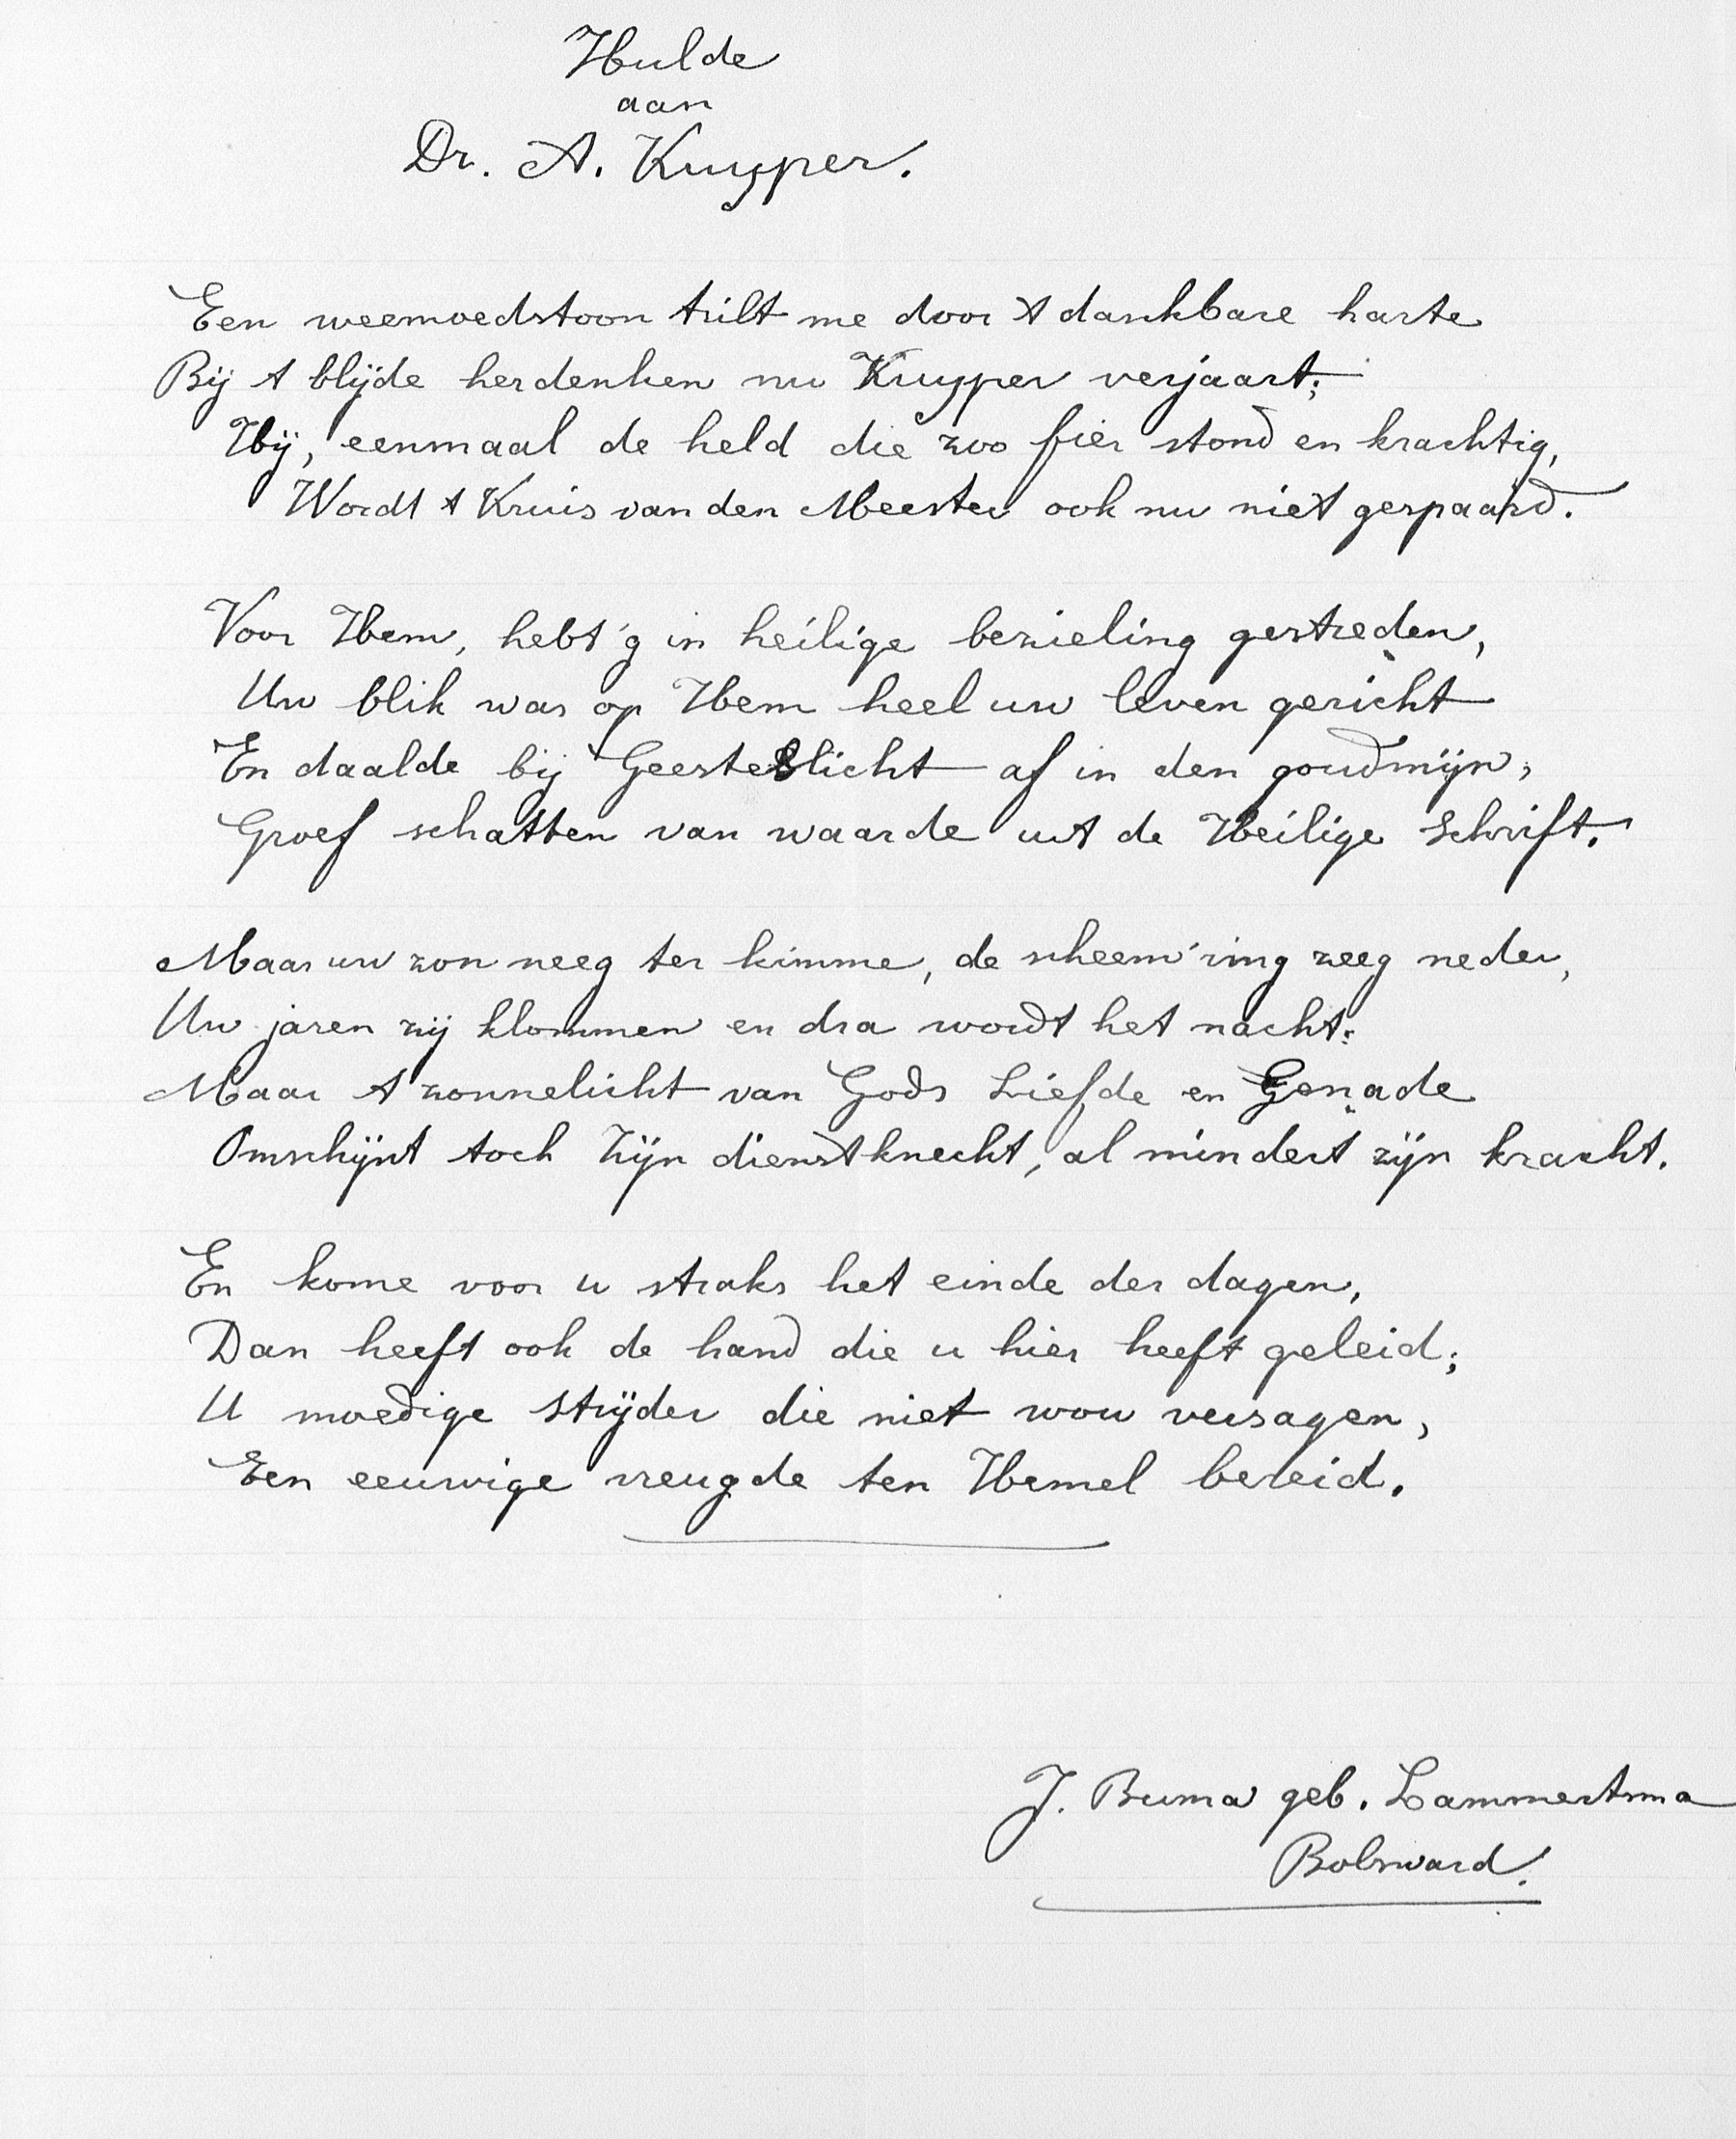 Hulde
aan
Dr. A. Kuyper.
Een weemoedstoon trilt me door 't dankbare harte
Bij 't blijde herdenken nu Kuyper verjaart;
Hij, eenmaal de held die zoo fier stond en krachtig,
Wordt 't Kruis van den Meester ook nu niet gespaard.
Voor Hem, hebt 'g in heilige bezieling gestreden,
Uw blik was op Hem heel uw leven gericht
En daalde bij Geesteslicht af in den goudmijn,
Groef schatten van waarde uit de Heilige Schrift.
Maar uw zon neeg ter kimme, de scheem'ring zeeg neder,
Uw jaren zij klommen en dra wordt het nacht:
Maar 't zonnelicht van Gods Liefde en Genade
Omschijnt toch Zijn dienstknecht, al mindert zijn kracht.
En kome voor u straks het einde der dagen,
Dan heeft ook de hand die u hier heeft geleid;
U moedige strijder die niet wou versagen,
Een eeuwige vreugde ten Hemel bereid.
J. Buma geb. Lammertsma
Bolsward.